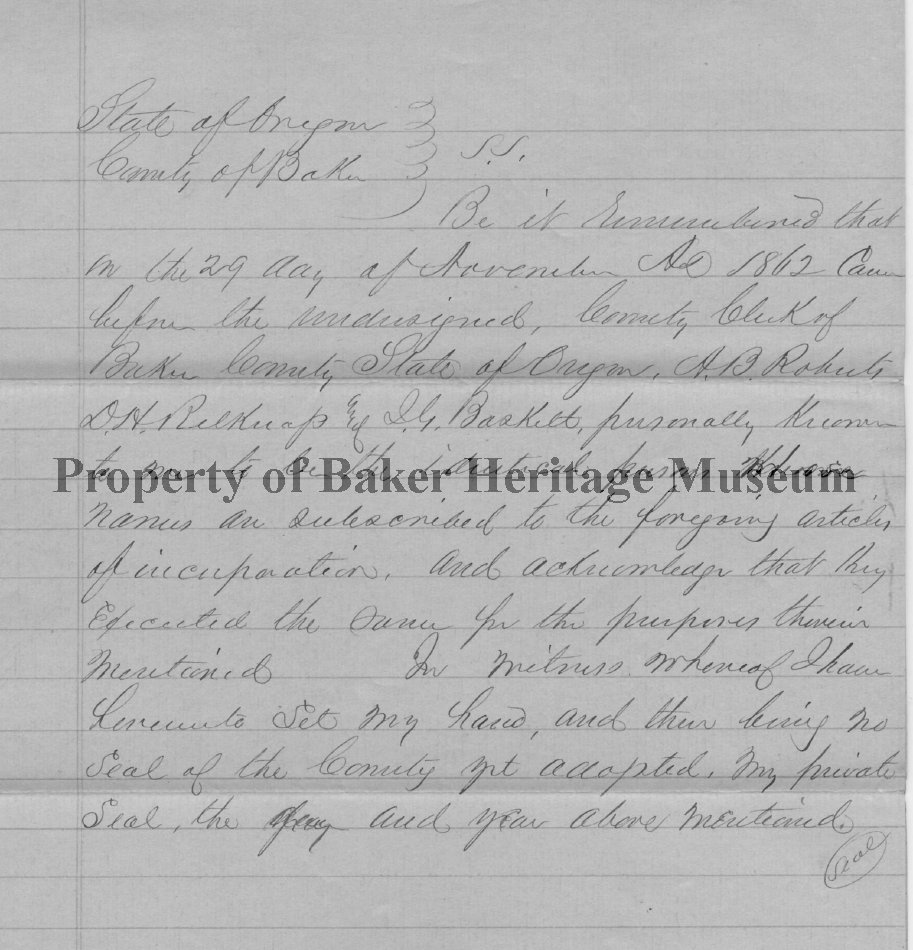 State of Oregon
County of Baker } S.S.
Be it Remembered that
on the 29 day of November AD 1862 Came
before the undersigned, County Clerk of
Baker County State of Oregon, A.B. Roberts
D.H. Belknap & I.G. Baskett, personally Known
to me to be the identical persons whose
Property of Baker Heritage Museum
names are subscribed to the foregoing articles
of incorporation, and acknowledge that they
Executed the same for the purposes therein
Mentioned In Witness Whereof I have
hereunto Set my hand, and there being no
Seal of the County yet adopted, my private
Seal, the day and year above mentioned.
Seal